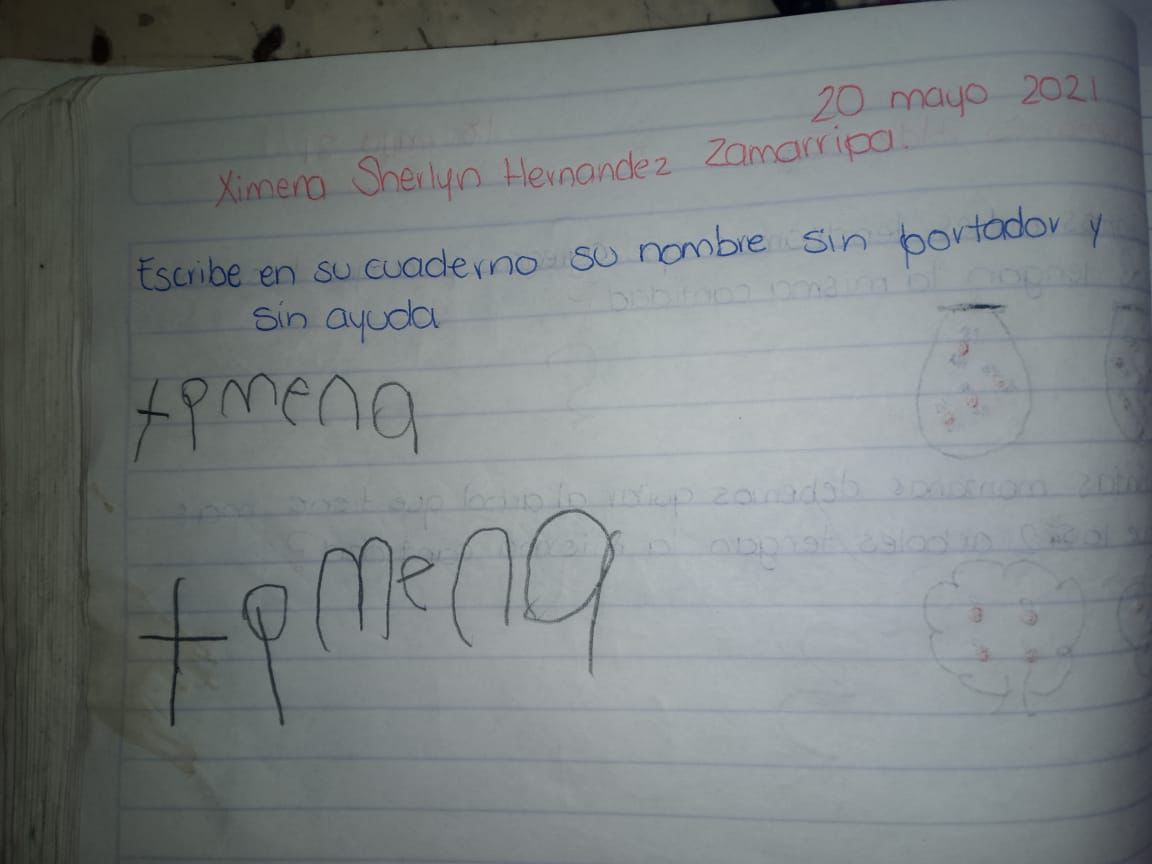 20 mayo 2021
Ximena Sherlyn Hernandez Zamarripa.
Escribe en su cuaderno su nombre sin portador y
sin ayuda
ximena
ximena